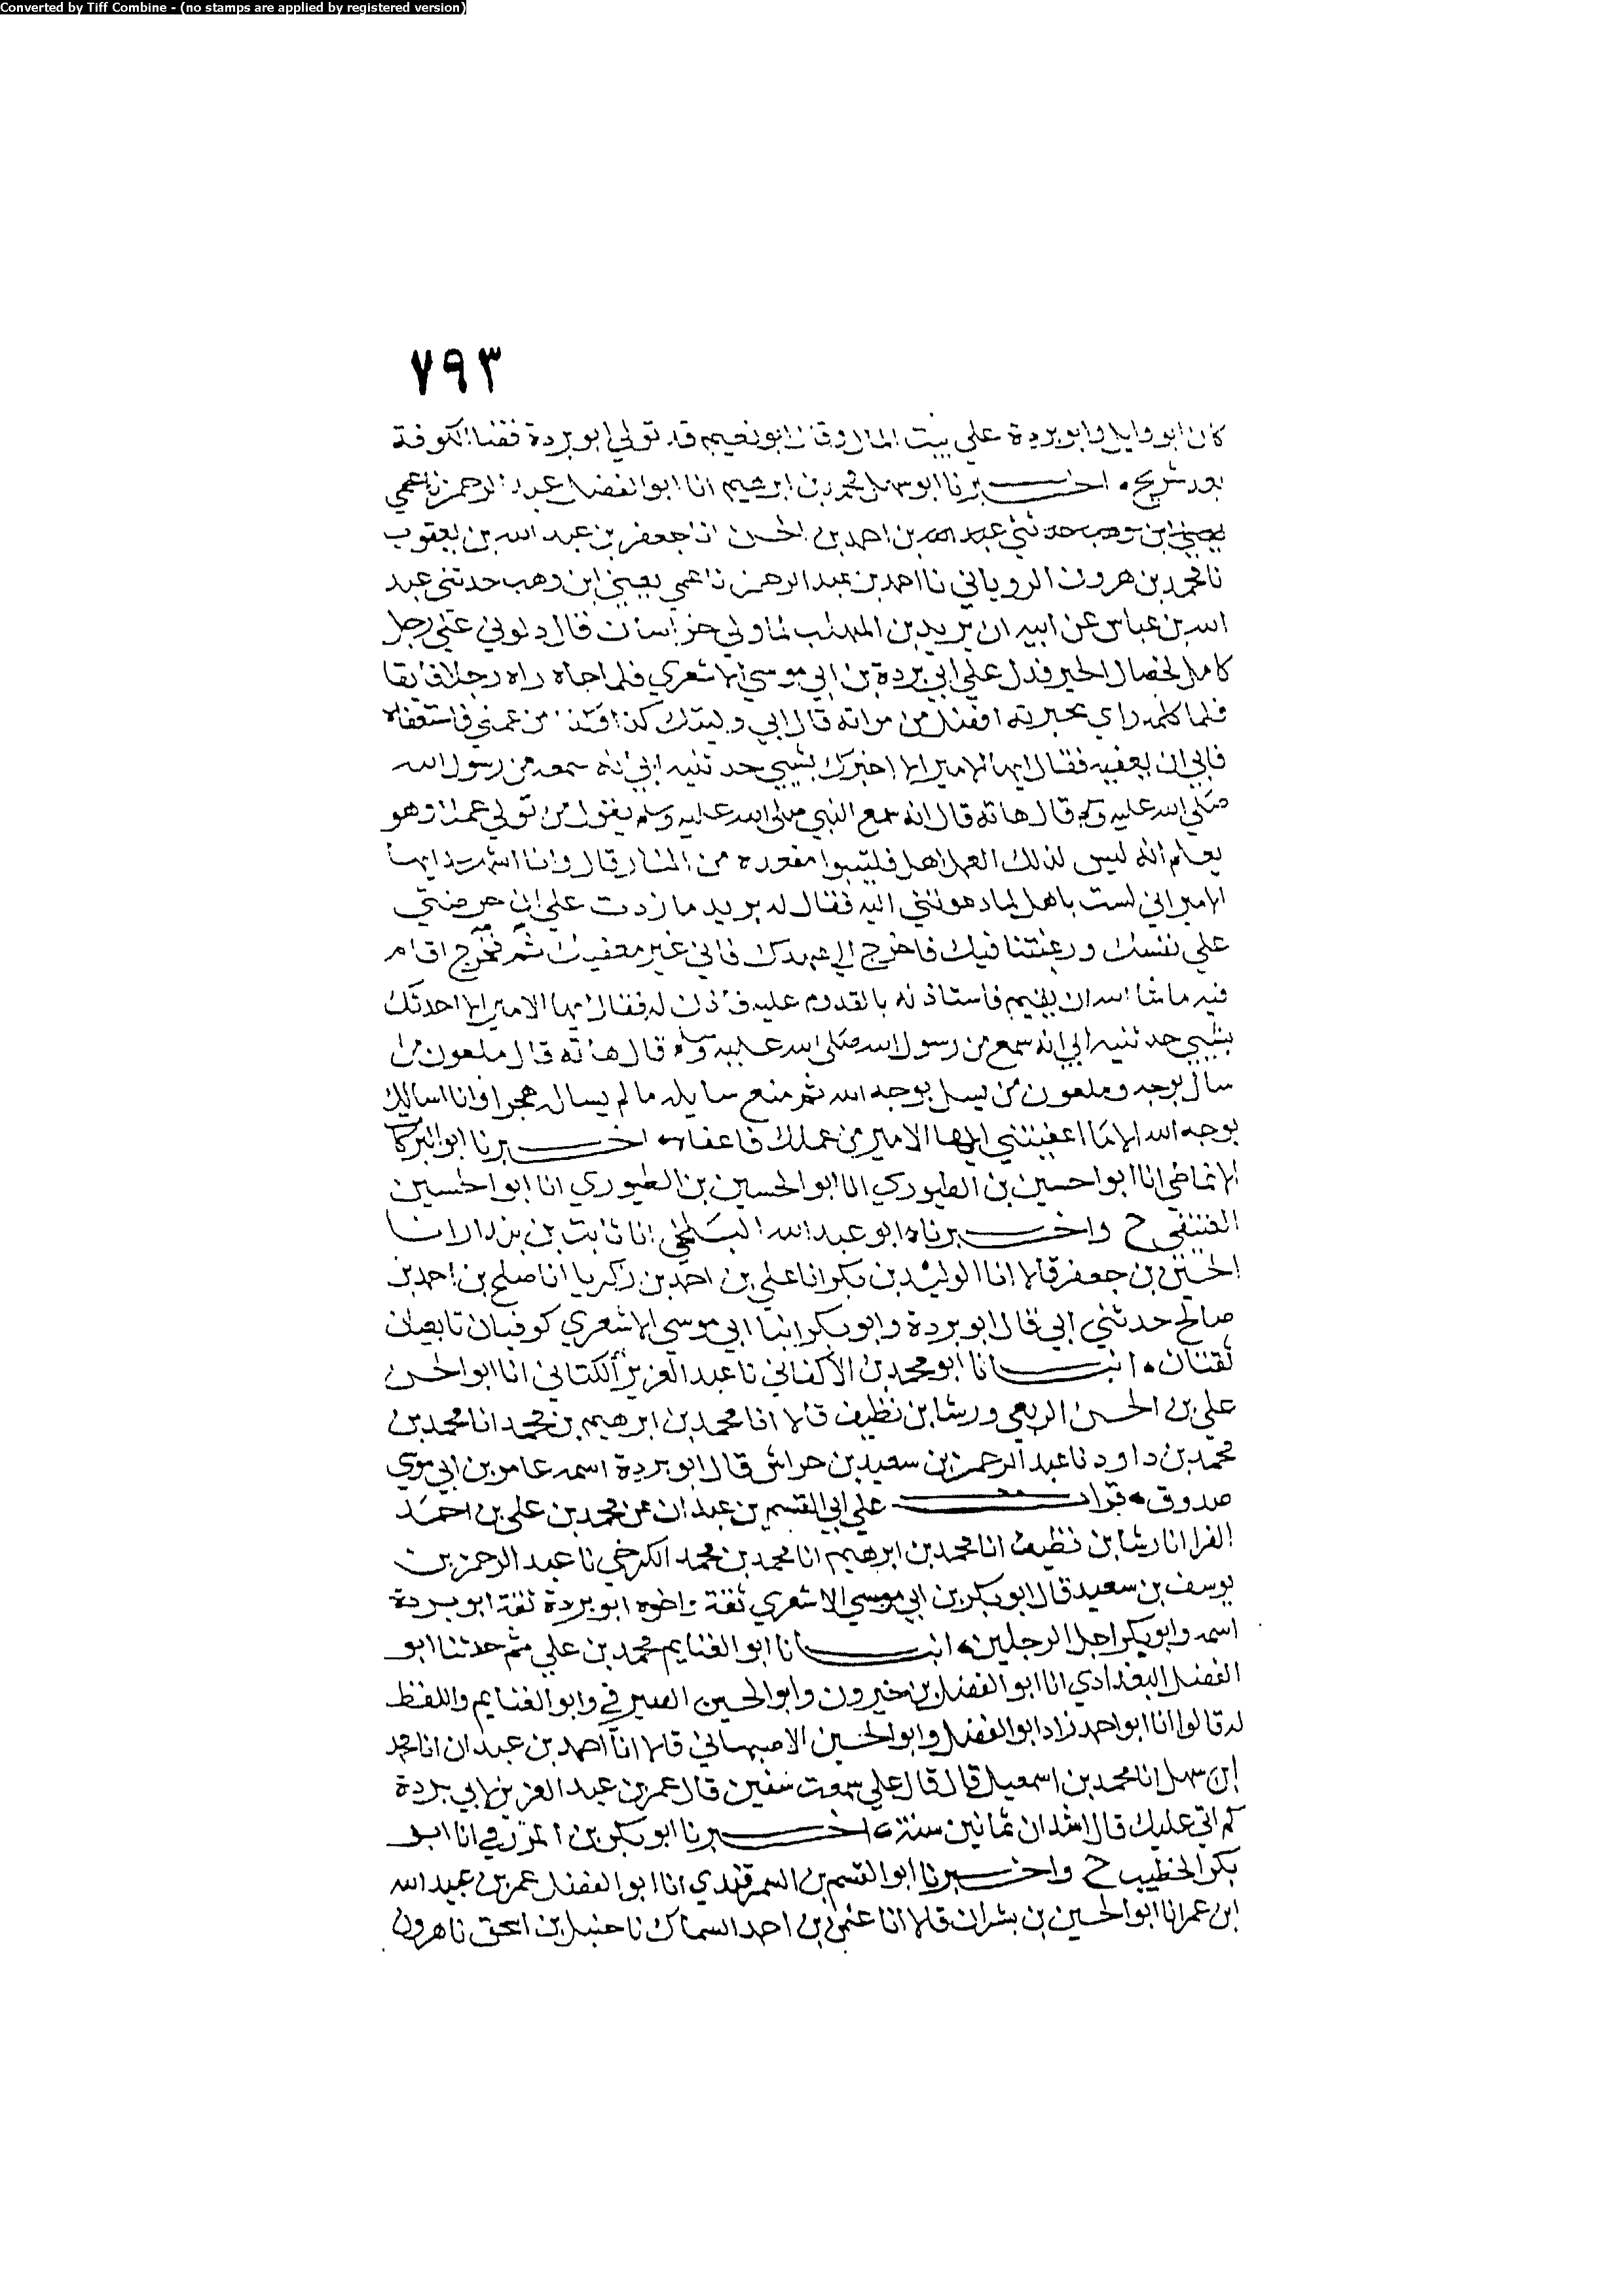 Converted by Tiff Combine - (no stamps are applied by registered version)
٧٩٣
كان ابو وايل وابو بردة علي بيت المال وقال ابو نعيم قد تولي ابو بردة قضا الكوفة
بعد شريح ٥ اخبرنا ابو سهل محمد بن ابرهيم انا ابو الفضل عبد الرحمن نا عمي
يعني ابن وهب حدثني عبد الله بن احمد بن الحسن انا جعفر بن عبد الله بن يعقوب
نا محمد بن هرون الروياني نا احمد بن عبد الرحمن نا عمي يعني ابن وهب حدثني عبد
الله بن عباس عن ابيه ان يزيد بن المهلب لما ولي خراسان قال دلوني علي رجل
كامل لخصال الخير فدل علي ابي بردة بن ابي موسي الاشعري فلما جاه راه رجلا فايقا
فلما كلمه راي مخبرته افضل من مراته قال اني وليتك كذا وكذا من عملي فاستعفاه
فابي ان يعفيه فقال ايها الامير الا اخبرك بشيي حدثنيه ابي انه سمعه من رسول الله
صلي الله عليه وسلم قال هاته قال انه سمع النبي صلي الله عليه وسلم يقول من تولي عملا وهو
يعلم انه ليس لذلك العمل اهل فليتبوا مقعده من النار قال وانا اشهد ايها
الامير اني لست باهل لما دعوتني اليه فقال له يزيد ما زدت علي ان حرضتني
علي نفسك ورغبتنا فيك فاخرج الي عهدك فاني غير معفيك ثم فخرج اقام
فيه ما شا الله ان يقيم فاستاذنه بالقدوم عليه فاذن له فقال ايها الامير الا احدثك
بشيي حدثنيه ابي انه سمع من رسول الله صلي الله عليه وسلم قال هاته قال ملعون من
سال بوجه وملعون من يسل بوجه الله ثم منع سايله ما لم يساله هجرا وانا اسالك
بوجه الله الا ما اعفيتني ايها الامير من عملك فاعفاه ٥ اخبرنا ابو البركات
الانماطي انا ابو احسين بن الطيوري انا ابو الحسين بن الطيوري انا ابو الحسين
العتيقي ح واخبرناه ابو عبد الله البلخي انا ثابت بن بندار انا
الحسين بن جعفر قالا انا الوليد بن بكر انا علي بن احمد بن زكريا انا صلح بن احمد بن
صالح حدثني ابي قال ابو بردة وابو بكر ابنا ابي موسي الاشعري كوفيان تابعيان
ثقتان ٥ انبانا ابو محمد بن الاكفاني نا عبد العزيز الكتاني انا ابو الحسن
علي بن الحسن الربعي ورشا بن نظيف قالا انا محمد بن ابرهيم بن محمد انا محمد بن
محمد بن داود نا عبد الرحمن بن سعيد بن خراش قال ابو بردة اسمه عامر بن ابي موسي
صدوق ٥ قرات علي ابي القسم بن عبدان عن محمد بن علي بن احمد
الفرا انا رشا بن نظيف انا محمد بن ابرهيم انا محمد بن محمد الكرخي نا عبد الرحمن بن
يوسف بن سعيد قال ابو بكر بن ابي موسي الاشعري ثقة واخوه ابو بردة ثقة ابو بردة
اسمه وابو بكر اجل الرجلين ٥ انبانا ابو الغنايم محمد بن علي ثم حدثنا ابو
الفضل البغدادي انا ابو الفضل بن خيرون وابو الحسين الصيرفي وابو الغنايم واللفظ
له قالوا انا ابو احمد زاد ابو الفضل وابو الحسين الاصبهاني قالا انا احمد بن عبدان انا محمد
ابن سهل انا محمد بن اسمعيل قال قال علي سمعت سفين قال عمر بن عبد العزيز لابي بردة
كم اتي عليك قال اشدان ثمانين سنة ٥ اخبرنا ابو بكر بن المزرفي انا ابو
بكر الخطيب ح واخبرنا ابو القسم بن السمرقندي انا ابو الفضل عمر بن عبيد الله
ابن عمر انا ابو الحسين بن بشران قالا انا عثمن بن احمد السماك نا حنبل بن اسحق نا هرون